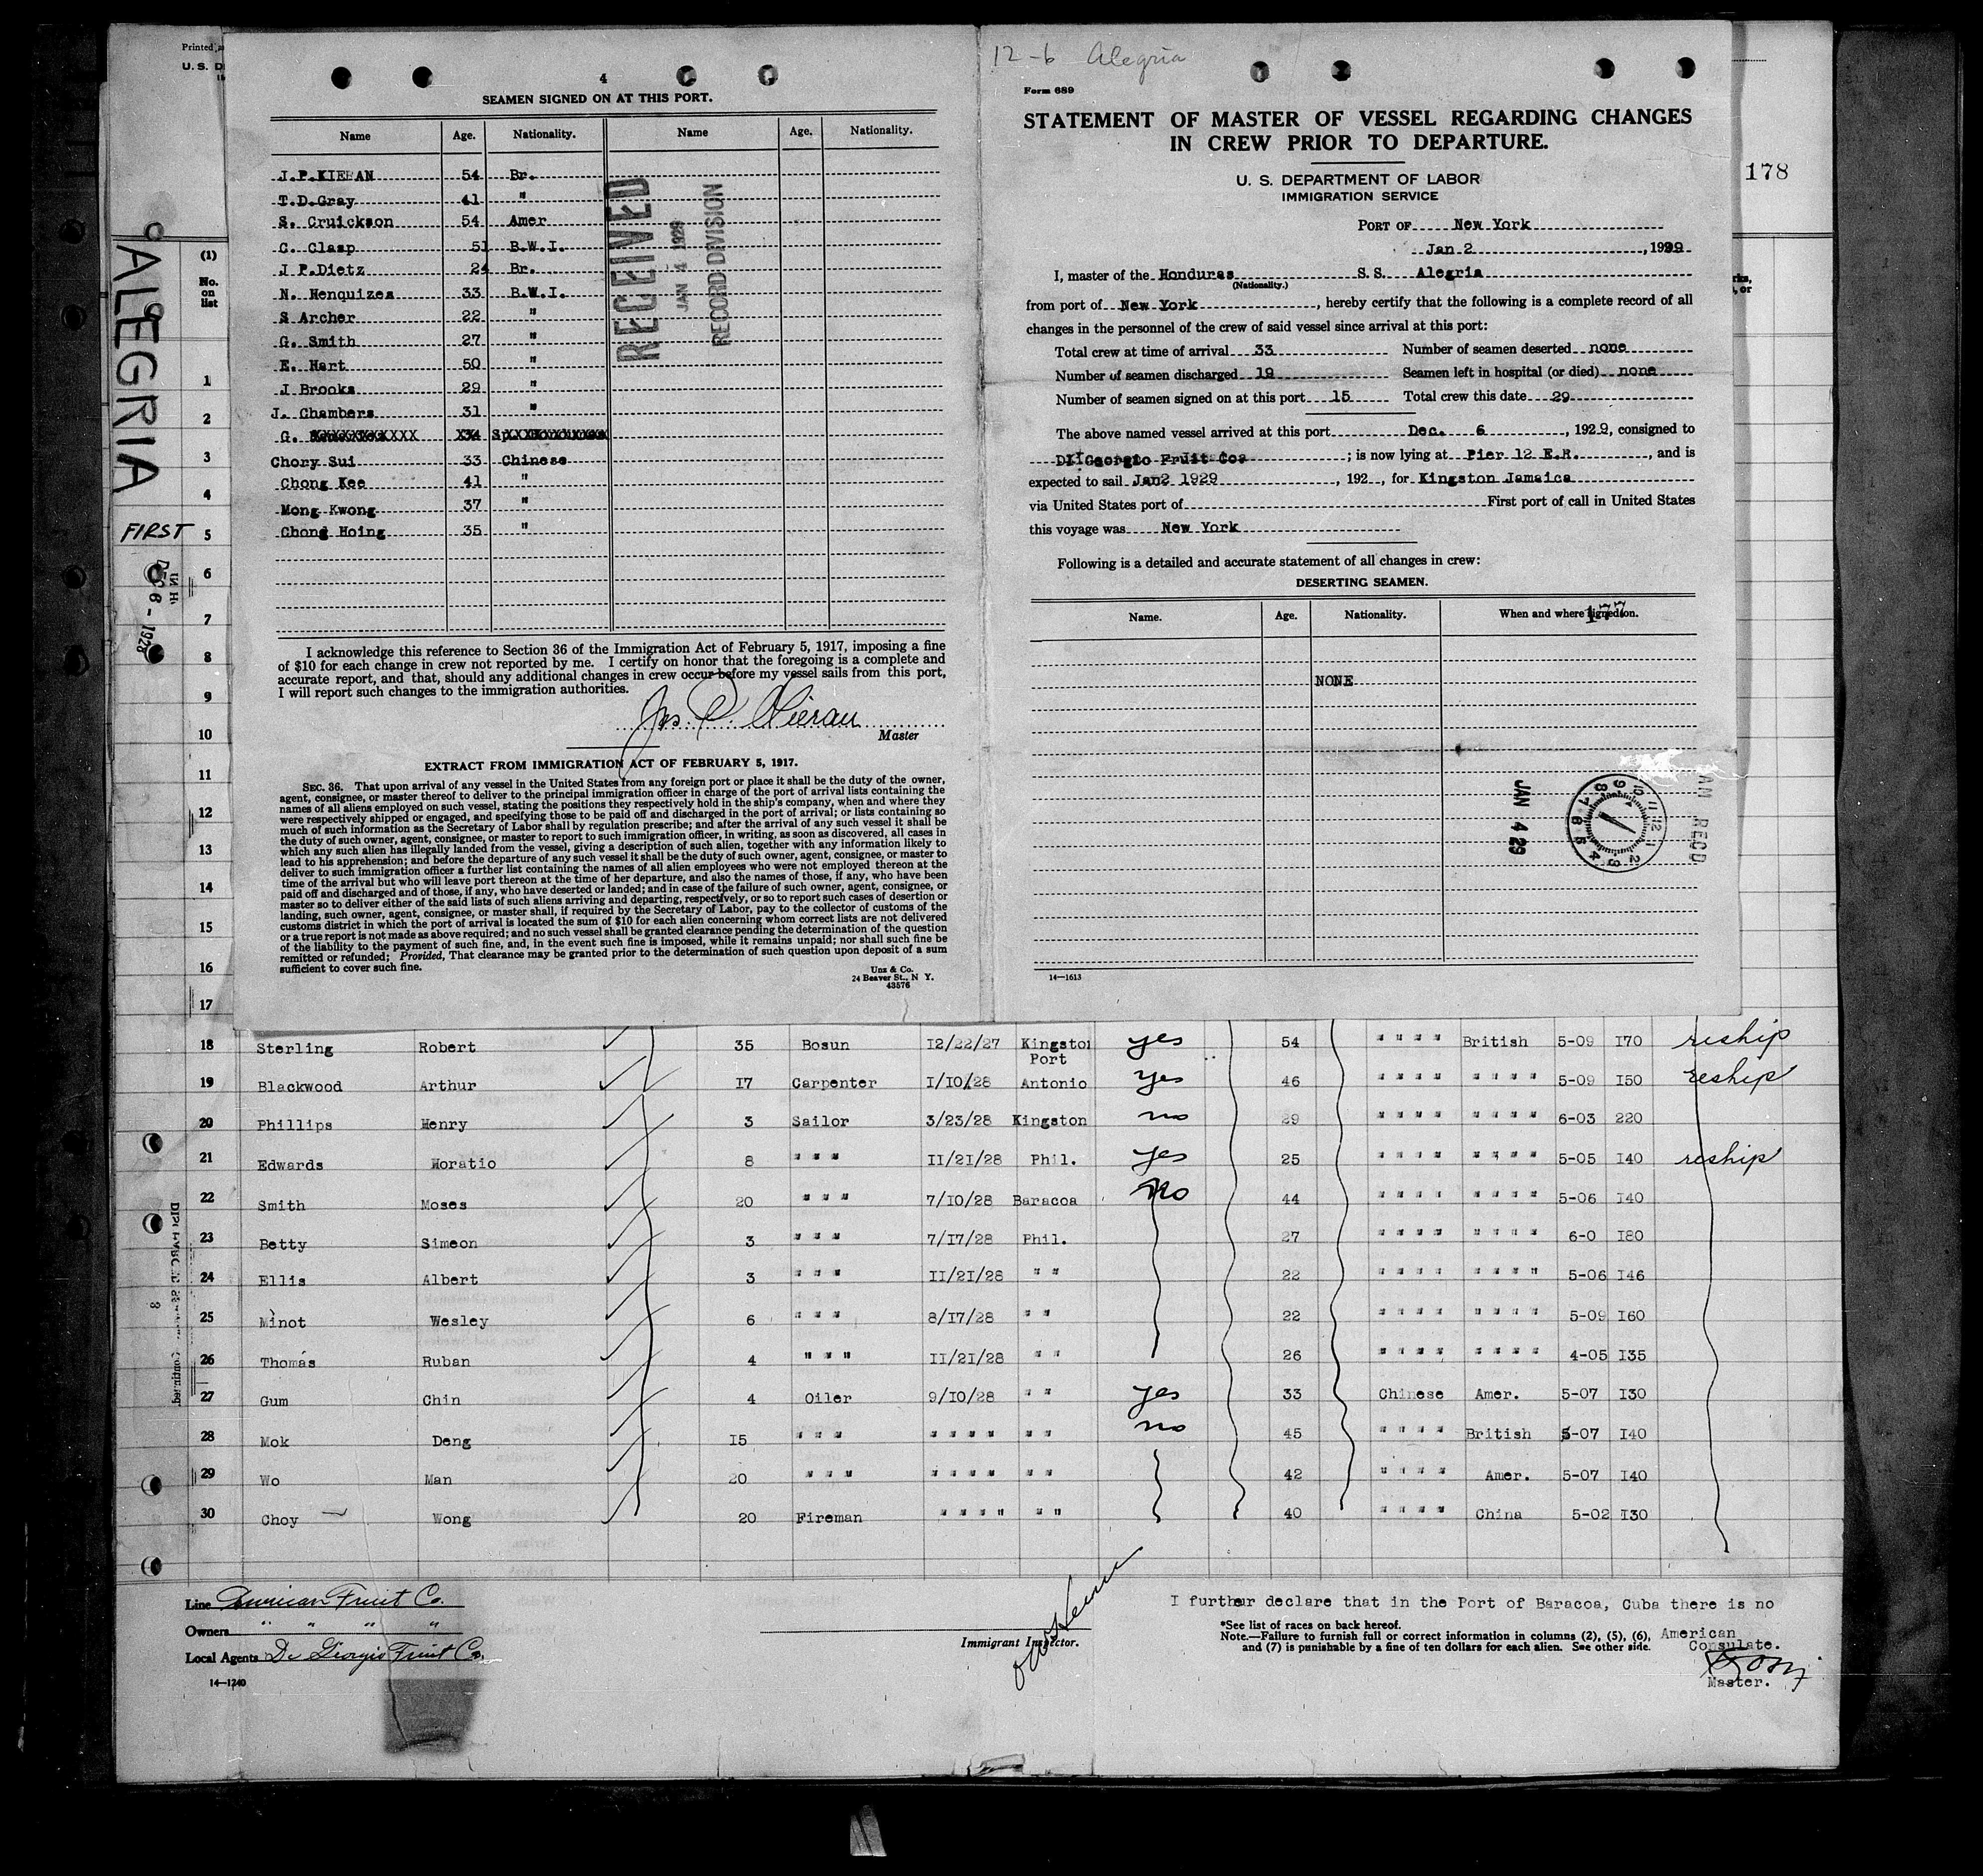 Printed
U. S. D
4
SEAMEN SIGNED ON AT THIS PORT.
Name Age. Nationality. Name Age. Nationality.
J.P.KIERAN 54 Br.
T.D.Gray 41 "
S. Cruickson 54 Amer
C. Clasp 51 B.W.I.
J P.Dietz 24 Br.
N. Henquizes 33 B.W.I.
S Archer 22 "
G. Smith 27 "
E. Hart 50 "
J Brooks 29 "
J. Chambers 31 "
G.
Chory Sui 33 Chinese
Chong Kee 41 "
Mong Kwong 37 "
Chong Hoing 35 "
RECEIVED
JAN 4 1929
RECORD DIVISION
I acknowledge this reference to Section 36 of the Immigration Act of February 5, 1917, imposing a fine
of $10 for each change in crew not reported by me. I certify on honor that the foregoing is a complete and
accurate report, and that, should any additional changes in crew occur before my vessel sails from this port,
I will report such changes to the immigration authorities.
Jas. P. Kieran
Master
EXTRACT FROM IMMIGRATION ACT OF FEBRUARY 5, 1917.
SEC. 36. That upon arrival of any vessel in the United States from any foreign port or place it shall be the duty of the owner,
agent, consignee, or master thereof to deliver to the principal immigration officer in charge of the port of arrival lists containing the
names of all aliens employed on such vessel, stating the positions they respectively hold in the ship's company, when and where they
were respectively shipped or engaged, and specifying those to be paid off and discharged in the port of arrival; or lists containing so
much of such information as the Secretary of Labor shall by regulation prescribe; and after the arrival of any such vessel it shall be
the duty of such owner, agent, consignee, or master to report to such immigration officer, in writing, as soon as discovered, all cases in
which any such alien has illegally landed from the vessel, giving a description of such alien, together with any information likely to
lead to his apprehension; and before the departure of any such vessel it shall be the duty of such owner, agent, consignee, or master to
deliver to such immigration officer a further list containing the names of all alien employees who were not employed thereon at the
time of the arrival but who will leave port thereon at the time of her departure, and also the names of those, if any, who have been
paid off and discharged and of those, if any, who have deserted or landed; and in case of the failure of such owner, agent, consignee, or
master so to deliver either of the said lists of such aliens arriving and departing, respectively, or so to report such cases of desertion or
landing, such owner, agent, consignee, or master shall, if required by the Secretary of Labor, pay to the collector of customs of the
customs district in which the port of arrival is located the sum of $10 for each alien concerning whom correct lists are not delivered
or a true report is not made as above required; and no such vessel shall be granted clearance pending the determination of the question
of the liability to the payment of such fine, and, in the event such fine is imposed, while it remains unpaid; nor shall such fine be
remitted or refunded; Provided, That clearance may be granted prior to the determination of such question upon deposit of a sum
sufficient to cover such fine.
Unz & Co.
24 Beaver St., N Y.
43576
12-6 Alegria
Form 689
STATEMENT OF MASTER OF VESSEL REGARDING CHANGES
IN CREW PRIOR TO DEPARTURE.
U. S. DEPARTMENT OF LABOR
IMMIGRATION SERVICE
PORT OF New York
Jan 2, 1929
I, master of the Honduras S. S. Alegria
(Nationality.)
from port of New York, hereby certify that the following is a complete record of all
changes in the personnel of the crew of said vessel since arrival at this port:
Total crew at time of arrival 33 Number of seamen deserted none
Number of seamen discharged 19 Seamen left in hospital (or died) none
Number of seamen signed on at this port 15 Total crew this date 29
The above named vessel arrived at this port Dec. 6, 1929, consigned to
DI Georgio Fruit Cos; is now lying at Pier 12 E.R., and is
expected to sail Jan2 1929, 192 , for Kingston Jamaica
via United States port of First port of call in United States
this voyage was New York
Following is a detailed and accurate statement of all changes in crew:
DESERTING SEAMEN.
Name. Age. Nationality. When and where signed on.
177
NONE
JAN 4 29
AM RECD
14—1613
178
ALEGRIA
FIRST
DEC 6 - 1928
(1)
No.
on
list
1
2
3
4
5
6
7
8
9
10
11
12
13
14
15
16
17
18 Sterling Robert 35 Bosun 12/22/27 Kingston yes 54 " " " " British 5-09 170 reship
19 Blackwood Arthur 17 Carpenter 1/10/28 Port Antonio yes 46 " " " " " " " " 5-09 150 reship
20 Phillips Henry 3 Sailor 3/23/28 Kingston no 29 " " " " " " " " 6-03 220
21 Edwards Horatio 8 " " " 11/21/28 Phil. yes 25 " " " " " " " " 5-05 140 reship
22 Smith Moses 20 " " " 7/10/28 Baracoa no 44 " " " " " " " " 5-06 140
23 Betty Simeon 3 " " " 7/17/28 Phil. 27 " " " " " " " " 6-0 180
24 Ellis Albert 3 " " " 11/21/28 " " 22 " " " " " " " " 5-06 146
25 Minot Wesley 6 " " " 8/17/28 " " 22 " " " " " " " " 5-09 160
26 Thomas Ruban 4 " " " 11/21/28 " " 26 " " " " " " " " 4-05 135
27 Gum Chin 4 Oiler 9/10/28 " " yes 33 Chinese Amer. 5-07 130
28 Mok Deng 15 " " " " " " " " " no 45 " " " " British 5-07 140
29 Wo Man 20 " " " " " " " " " 42 " " " " Amer. 5-07 140
30 Choy Wong 20 Fireman " " " " " " 40 " " " " China 5-02 130
Line American Fruit Co.
Owners " " " "
Local Agents Di Giorgio Fruit Co.
14—1240
Immigrant Inspector.
I further declare that in the Port of Baracoa, Cuba there is no
American
Consulate.
*See list of races on back hereof.
Note.—Failure to furnish full or correct information in columns (2), (5), (6),
and (7) is punishable by a fine of ten dollars for each alien. See other side.
Master.